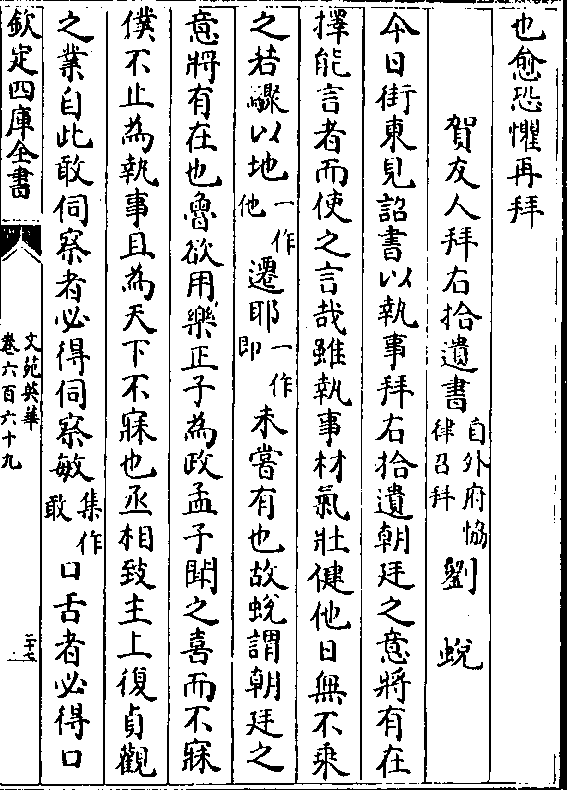 也愈恐懼再拜
賀友人拜右拾遺書自外府協律召拜 劉蛻
今日街東見詔書以執事拜右拾遺朝廷之意將有在
擇能言者而使之言哉雖執事材氣壯健他日無不乘
之若驟以地一作他遷耶一作即未嘗有也故蛻謂朝廷之
意將有在也魯欲用樂正子為政孟子聞之喜而不寐
僕不止為執事且為天下不寐也丞相致主上復貞觀
之業自此敢伺察者必得伺察敏集作敢口舌者必得口
欽定四庫全書
文苑英華
卷六百六十九
二十七